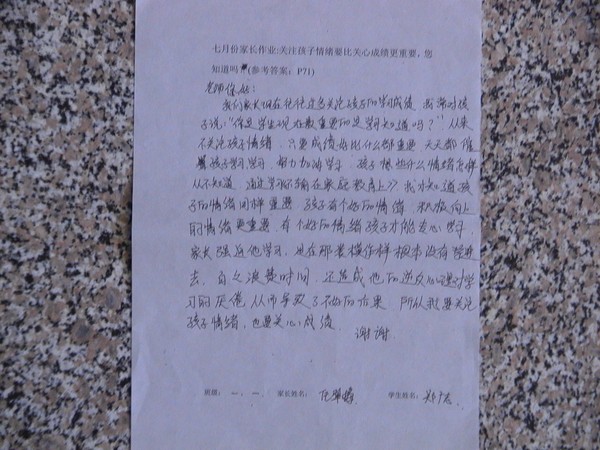 七月份家长作业:关注孩子情绪要比关心成绩更重要。您
知道吗(参考答案：P71)
老师您好：
我们家长现在往往过多关注孩子的学习成绩 我常对孩
子说“你是学生现在最重要的是学习知道吗？”从来
不关注孩子情绪 只要成绩好比什么都重要 天天都催
着孩子学习学习 努力加油学习 孩子 什么情绪怎样
从不知道 通过学习《 在家庭教育上》我才知道孩
子的情绪同样重要 孩子有个好的情绪 积极向上
的情绪更重要 有个好的情绪孩子才能安心学习
家长强迫他学习 他在那装模作样根本没有学进
去 白白浪费时间 还造成他的逆反心理对学
习的厌倦 从而导致了不好的后果 所以我要关注
孩子情绪 也要关心成绩
谢谢
班级： 一．一 家长姓名： 学生姓名：